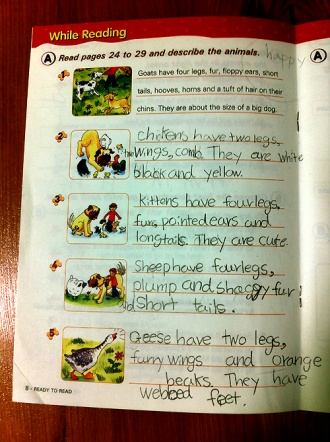 While Reading
A Read pages 24 to 29 and describe the animals. happy
A
Goats have four legs, fur, floppy ears, short
tails, hooves, horns and a tuft of hair on their
chins. They are about the size of a big dog.
chickens have two legs,
wings, comb. They are white
black and yellow.
kittens have four legs,
fur, pointed ears and
long tails. They are cute.
Sheep have four legs,
plump and shaggy fur
and short tails.
5
Geese have two legs,
furry wings and orange
beaks. They have
webbed feet.
8 - READY TO READ